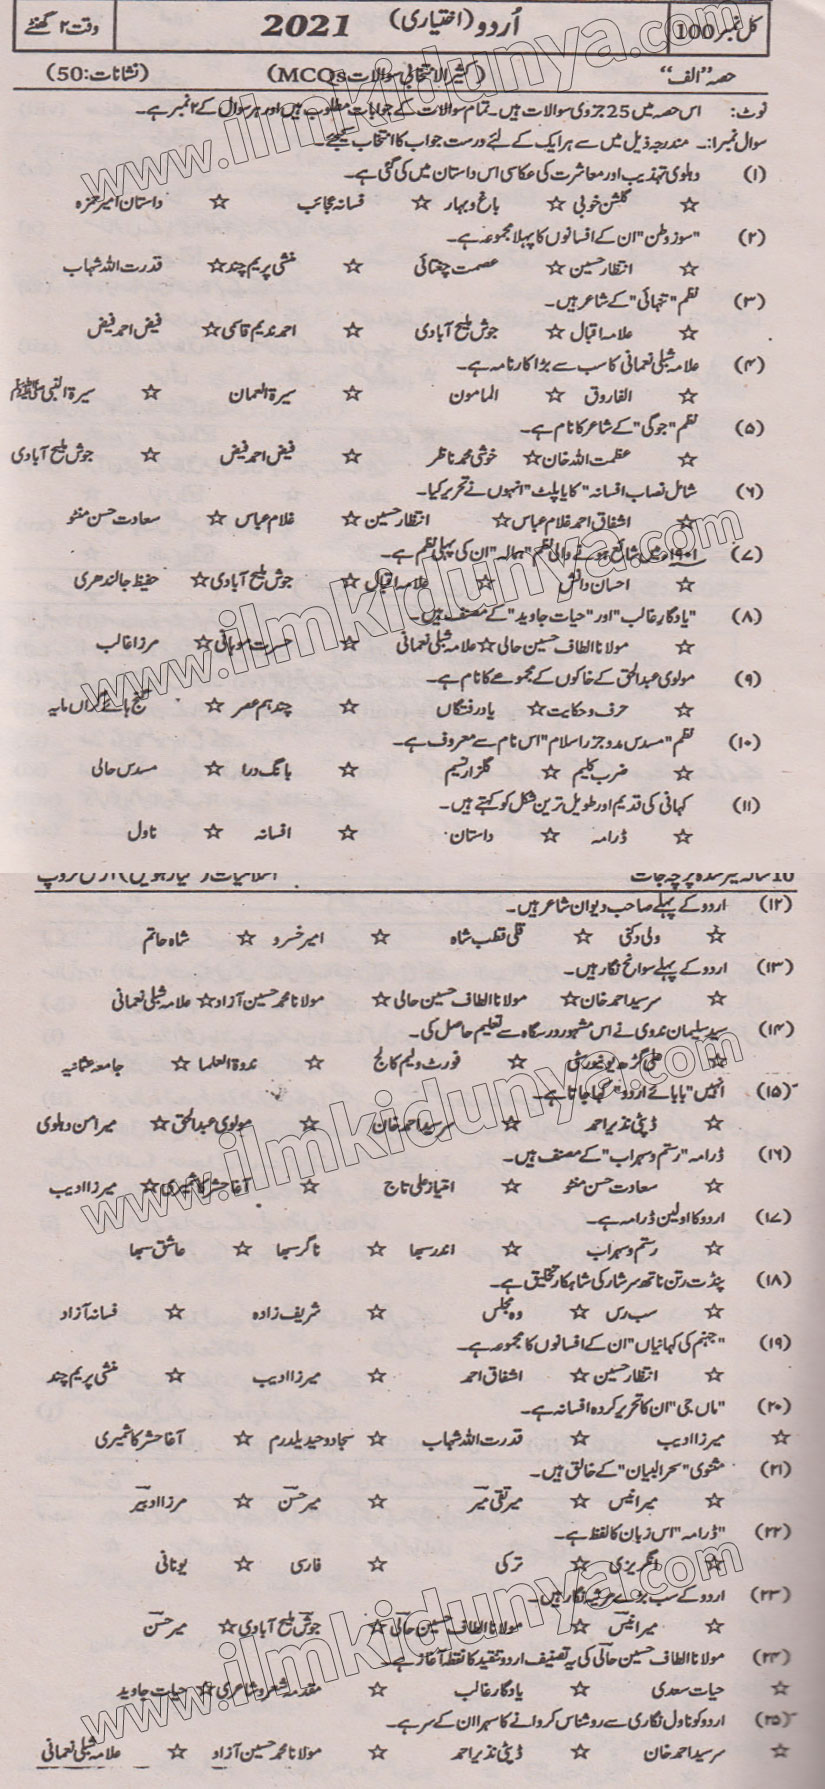 کل نمبر 100 اُردو (اختیاری) 2021 وقت ۲ گھنٹے
حصہ "الف" (کثیر الانتخابی سوالات MCQs) (نشانات: 50)
نوٹ: اس حصہ میں 25 جزوی سوالات ہیں۔ تمام سوالات کے جوابات مطلوب ہیں اور ہر سوال کے ۲ نمبر ہے۔
سوال نمبر۱:۔ مندرجہ ذیل میں سے ہر ایک کے لئے درست جواب کا انتخاب کیجئے۔
(۱) دہلوی تہذیب اور معاشرت کی عکاسی اس داستان میں کی گئی ہے۔
☆ گلشن خوبی ☆ باغ و بہار ☆ فسانہ عجائب ☆ داستان امیر حمزہ
(۲) "سوز وطن" ان کے افسانوں کا پہلا مجموعہ ہے۔
☆ انتظار حسین ☆ عصمت چغتائی ☆ منشی پریم چند ☆ قدرت اللہ شہاب
(۳) نظم "تنہائی" کے شاعر ہیں۔
☆ علامہ اقبال ☆ جوش ملیح آبادی ☆ احمد ندیم قاسمی ☆ فیض احمد فیض
(۴) علامہ شبلی نعمانی کا سب سے بڑا کارنامہ ہے۔
☆ الفاروق ☆ المامون ☆ سیرۃ النعمان ☆ سیرۃ النبی ﷺ
(۵) نظم "جوگی" کے شاعر کا نام ہے۔
☆ عظمت اللہ خان ☆ خوشی محمد ناظر ☆ فیض احمد فیض ☆ جوش ملیح آبادی
(۶) شامل نصاب افسانہ "کایا پلٹ" انہوں نے تحریر کیا۔
☆ اشفاق احمد غلام عباس ☆ انتظار حسین ☆ غلام عباس ☆ سعادت حسن منٹو
(۷) ۱۹۰۱ء میں شائع ہونے والی نظم "ہمالہ" ان کی پہلی نظم ہے۔
☆ احسان دانش ☆ علامہ اقبال ☆ جوش ملیح آبادی ☆ حفیظ جالندھری
(۸) "یادگار غالب" اور "حیات جاوید" کے مصنف ہیں۔
☆ مولانا الطاف حسین حالی ☆ علامہ شبلی نعمانی ☆ حسرت موہانی ☆ مرزا غالب
(۹) مولوی عبدالحق کے خاکوں کے مجموعے کا نام ہے۔
☆ حرف و حکایت ☆ یاد رفتگاں ☆ چند ہم عصر ☆ گنج ہائے گراں مایہ
(۱۰) نظم "مسدس مدوجزر اسلام" اس نام سے معروف ہے۔
☆ ضرب کلیم ☆ گلزار نسیم ☆ بانگ درا ☆ مسدس حالی
(۱۱) کہانی کی قدیم اور طویل ترین شکل کو کہتے ہیں۔
☆ ڈرامہ ☆ داستان ☆ افسانہ ☆ ناول
(۱۲) اردو کے پہلے صاحب دیوان شاعر ہیں۔
☆ ولی دکنی ☆ قلی قطب شاہ ☆ امیر خسرو ☆ شاہ حاتم
(۱۳) اردو کے پہلے سوانح نگار ہیں۔
☆ سرسید احمد خان ☆ مولانا الطاف حسین حالی ☆ مولانا محمد حسین آزاد ☆ علامہ شبلی نعمانی
(۱۴) سید سلیمان ندوی نے اس مشہور درسگاہ سے تعلیم حاصل کی۔
☆ علی گڑھ یونیورسٹی ☆ فورٹ ولیم کالج ☆ ندوۃ العلما ☆ جامعہ عثمانیہ
(۱۵) انہیں "بابائے اردو" کہا جاتا ہے۔
☆ ڈپٹی نذیر احمد ☆ سرسید احمد خان ☆ مولوی عبدالحق ☆ میر امن دہلوی
(۱۶) ڈرامہ "رستم و سہراب" کے مصنف ہیں۔
☆ سعادت حسن منٹو ☆ امتیاز علی تاج ☆ آغا حشر کاشمیری ☆ میرزا ادیب
(۱۷) اردو کا اولین ڈرامہ ہے۔
☆ رستم و سہراب ☆ اندر سبھا ☆ ناگر سبھا ☆ عاشق سبھا
(۱۸) پنڈت رتن ناتھ سرشار کی شاہکار تخلیق ہے۔
☆ سب رس ☆ وہ مجلس ☆ شریف زادہ ☆ فسانہ آزاد
(۱۹) "جہنم کی کہانیاں" ان کے افسانوں کا مجموعہ ہے۔
☆ انتظار حسین ☆ اشفاق احمد ☆ میرزا ادیب ☆ منشی پریم چند
(۲۰) "ماں جی" ان کا تحریر کردہ افسانہ ہے۔
☆ میرزا ادیب ☆ قدرت اللہ شہاب ☆ سجاد وحید یلدرم ☆ آغا حشر کاشمیری
(۲۱) مثنوی "سحر البیان" کے خالق ہیں۔
☆ میر انیس ☆ میر تقی میر ☆ میر حسن ☆ مرزا دبیر
(۲۲) "ڈرامہ" اس زبان کا لفظ ہے۔
☆ انگریزی ☆ ترکی ☆ فارسی ☆ یونانی
(۲۳) اردو کے سب بڑے مرثیہ نگار ہیں۔
☆ میر انیس ☆ مولانا الطاف حسین حالی ☆ جوش ملیح آبادی ☆ میر حسن
(۲۴) مولانا الطاف حسین حالی کی یہ تصنیف اردو تنقید کا نقطہ آغاز ہے۔
☆ حیات سعدی ☆ یادگار غالب ☆ مقدمہ شعر و شاعری ☆ حیات جاوید
(۲۵) اردو کو ناول نگاری سے روشناس کروانے کا سہرا ان کے سر ہے۔
☆ سرسید احمد خان ☆ ڈپٹی نذیر احمد ☆ مولانا محمد حسین آزاد ☆ علامہ شبلی نعمانی
www.ilmkidunya.com
www.ilmkidunya.com
www.ilmkidunya.com
www.ilmkidunya.com